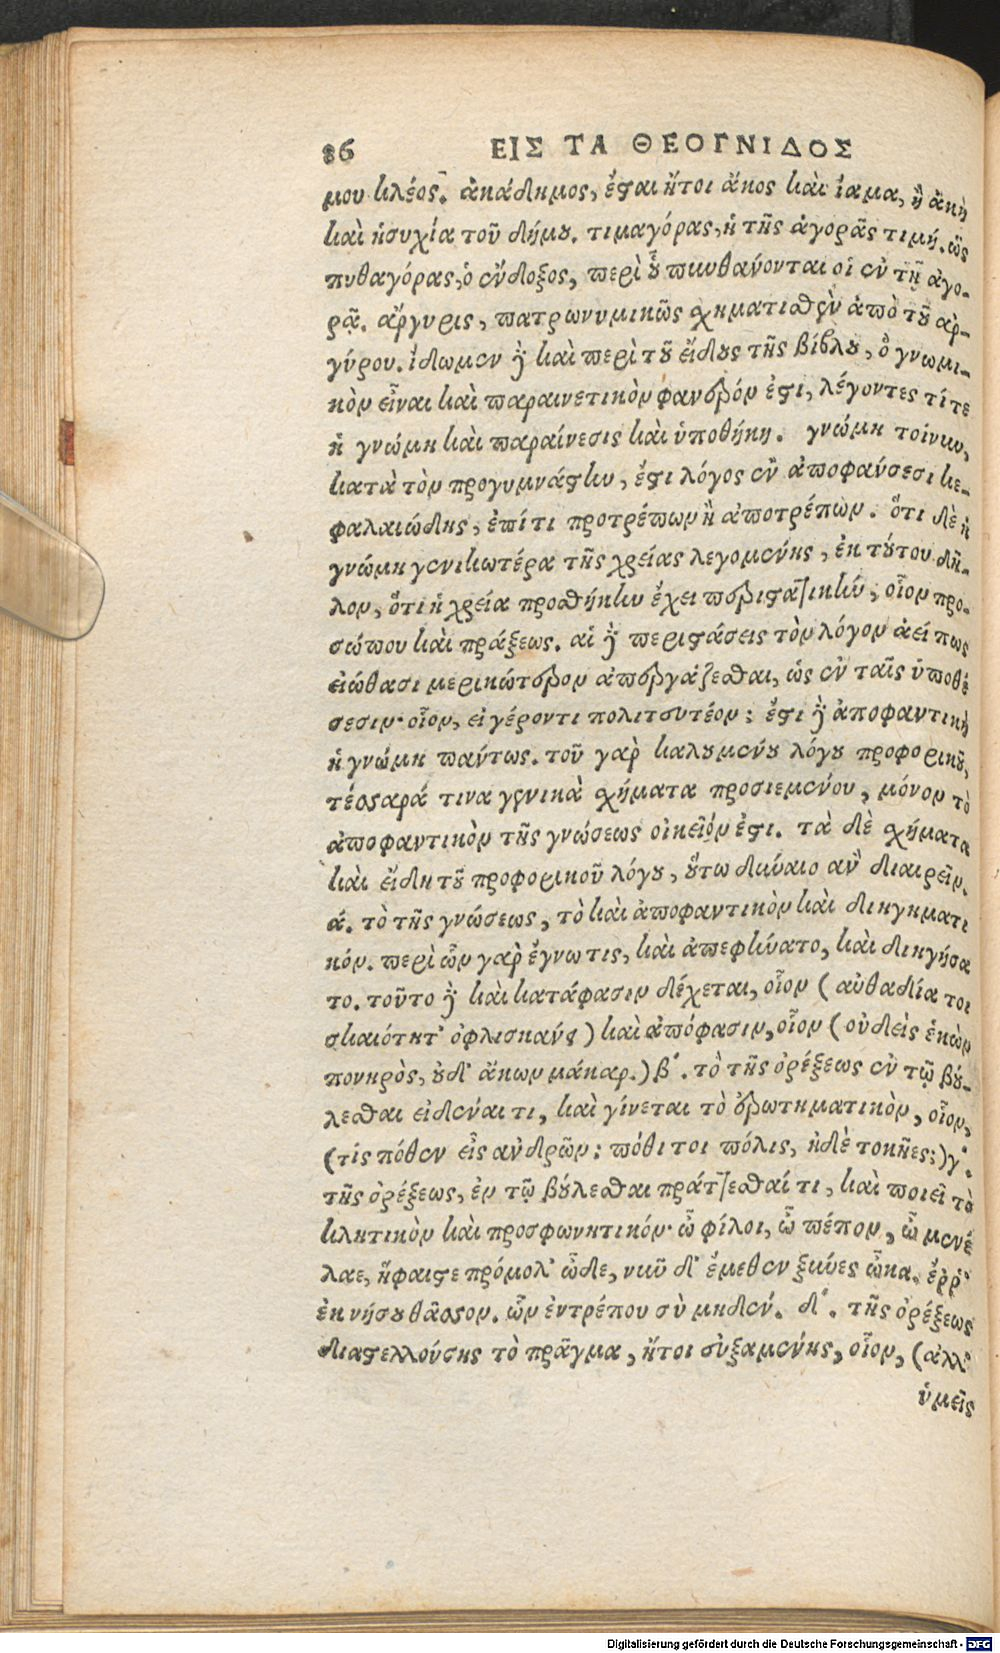 86 ΕΙΣ ΤΑ ΘΕΟΓΝΙΔΟΣ
μου κλέος. ἀκάδημος, ἔσται ἤτοι ἄκος καὶ ἴαμα, ἢ ἀκὴ
καὶ ἡσυχία τοῦ δήμου. τιμαγόρας, ἡ τῆς ἀγορᾶς τιμή. ὡς
πυθαγόρας, ὁ ἔνδοξος, περὶ οὗ πυνθάνονται οἱ ἐν τῇ ἀγο-
ρᾷ. ἄργυρις, πατρωνυμικῶς σχηματισθὲν ἀπὸ τοῦ ἀρ-
γύρου. ἴδωμεν δὲ καὶ περὶ τοῦ εἴδους τῆς βίβλου, ὃ γνωμι-
κὸν εἶναι καὶ παραινετικὸν φανερόν ἐστι, λέγοντες τί τε
ἡ γνώμη καὶ παραίνεσις καὶ ὑποθήκη. γνώμη τοίνυν,
κατὰ τὸν προγυμνάστην, ἔστι λόγος ἐν ἀποφάνσεσι κε-
φαλαιώδης, ἐπί τι προτρέπων ἢ ἀποτρέπων. ὅτι δὲ ἡ
γνώμη γενικωτέρα τῆς χρείας λεγομένης, ἐκ τούτου δῆ-
λον, ὅτι ἡ χρεία προσθήκην ἔχει περιστατικήν, οἷον προ-
σώπου καὶ πράξεως. αἱ δὲ περιστάσεις τὸν λόγον ἀεί πως
εἰώθασι μερικώτερον ἀπεργάζεσθαι, ὡς ἐν ταῖς ὑποθέ
σεσιν· οἷον, εἰ γέροντι πολιτευτέον; ἔστι δὲ ἀποφαντικὴ
ἡ γνώμη πάντως. τοῦ γὰρ καλουμένου λόγου προφορικοῦ,
τέσσαρά τινα γενικὰ σχήματα προσιεμένου, μόνον τὸ
ἀποφαντικὸν τῆς γνώσεως οἰκεῖόν ἐστι. τὰ δὲ σχήματα
καὶ εἴδη τοῦ προφορικοῦ λόγου, οὕτω δύναιο ἂν διαιρεῖν.
ά. τὸ τῆς γνώσεως, τὸ καὶ ἀποφαντικὸν καὶ διηγηματι
κόν. περὶ ὧν γὰρ ἔγνω τις, καὶ ἀπεφήνατο, καὶ διηγήσα
το. τοῦτο δὲ καὶ κατάφασιν δέχεται, οἷον (αὐθαδία τοι
σκαιότητ' ὀφλισκάνει) καὶ ἀπόφασιν, οἷον (οὐδεὶς ἑκὼν
πονηρὸς, οὐδ' ἄκων μάκαρ.) β΄. τὸ τῆς ὀρέξεως ἐν τῷ βού-
λεσθαι εἰδέναι τι, καὶ γίνεται τὸ ἐρωτηματικὸν, οἷον,
(τίς πόθεν εἶς ἀνδρῶν; πόθι τοι πόλις, ἠδὲ τοκῆες;) γ΄.
τῆς ὀρέξεως, ἐν τῷ βούλεσθαι πράττεσθαί τι, καὶ ποιεῖ τὸ
κλητικὸν καὶ προσφωνητικόν· ὦ φίλοι, ὦ πέπον, ὦ μενέ
λαε, ἥφαιστε πρόμολ' ὧδε, νῦν δ' ἔμεθεν ξύνες ὦκα. ἔῤῥ'
ἐκ νήσου θᾶσσον. ὧν ἐντρέπου σὺ μηδέν. δ΄. τῆς ὀρέξεως
διαστελλούσης τὸ πρᾶγμα, ἤτοι εὐξαμένης, οἷον, (ἀλλ'
ὑμεῖς
Digitalisierung gefördert durch die Deutsche Forschungsgemeinschaft - DFG